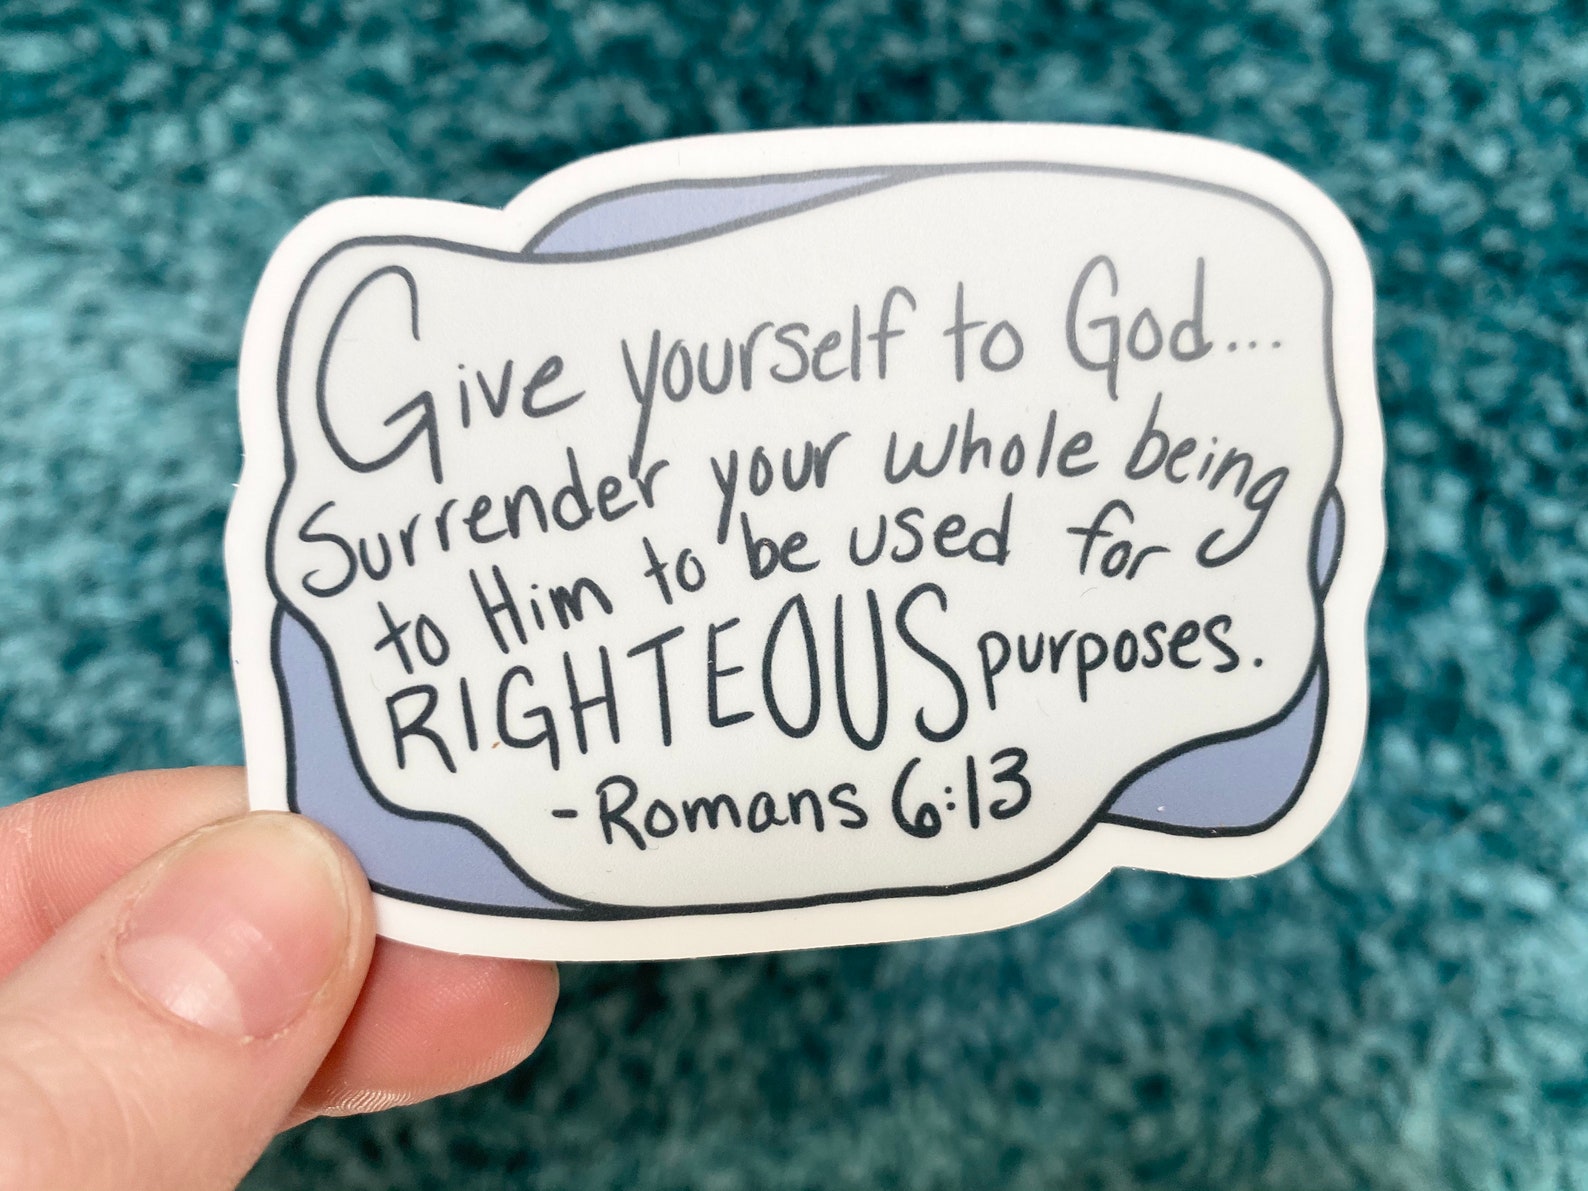 Give yourself to God...
Surrender your whole being
to Him to be used for
RIGHTEOUS purposes.
-Romans 6:13